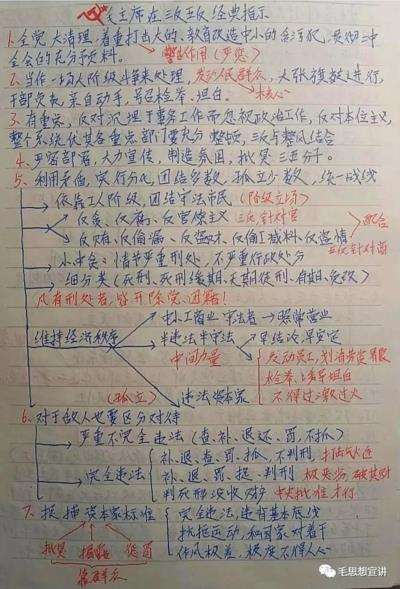 毛主席在三反五反经典指示
1.全党大清理,着重打击大的,教育改造中小的贪污犯,贯彻二中
全会的充分手资料。 警告作用(严惩)
2.当作一场大阶级斗争来处理,发动民群众,大张旗鼓去进行,
干部负责,亲自动手,号召检举、坦白。 核心
3.有重点,反对沉埋于事务工作而忽视政治工作,反对本位主义,
整个系统使其各重点部门要充分整顿,三反与整风结合
4.严密部署,大力宣传,制造氛围,批臭三五分子。
5.利用矛盾,实行分化,团结多数,孤立少数,统一战线
依靠工人阶级,团结守法市民(阶级立场)
反贪、反污、反官僚主义 三反针对官
反贿、反偷漏、反盗财、反偷工减料、反盗情 五反针对商
配合
小中贪:情节严重刑处,不严重行政处分
细分类(死刑、死刑缓期、无期徒刑、有期、免改)
凡有刑处者,皆开除党、团籍!
维持经济秩序
中小工商业守法者→照常营业
半违法半守法 早结论早安定
中间力量
发动员工,划清劳资界限
检举、
不得过激过火
(孤立)
违法资本家
6.对于敌人也要区分对待
严重不完全违法(查、补、退还、罚、不抓)
完全违法
补、退、查、罚、抓、不判刑,打击气焰
补、退、罚、捉、判刑 极恶劣,破其财
判死刑没收财产 中央批准才行
7.捉捕资本家标准
完全违法,违背基本底线
抗拒运动,和国家对着干
作风极差,极度不得人心
批臭 搞臭 
靠群众
毛思想宣讲